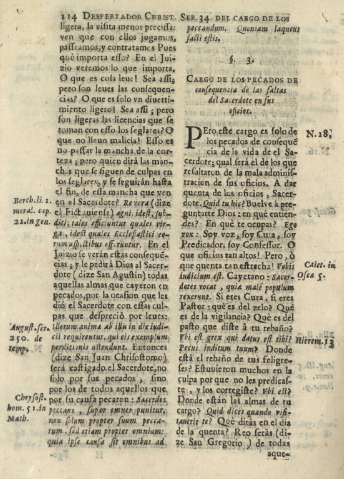 114 DESPERTADOR CHRIST. SER. 34. DEL CARGO DE LOS
ligera, la visita menos precissa:
ven que con ellos jugamos,
passeamos, y contratamos. Pues
què importa esso? En el Jui-
zio verèmos lo que importa.
O que es cosa leue! Sea assi;
pero son leues las consequen-
cias? O que es solo vn diverti-
miento ligero! Sea assi; pero
son ligeras las licencias que se
toman con esso los seglares? O
que no es malicia! Esso es
no passar la mancha de la cor-
teza; pero quien dirà las man-
chas que se siguen de culpas en
los seglares, y se seguiràn hasta
el fin, de essa mancha que ven
en el Sacerdote? Re vera (dize
el Pictauiense) agni idest, sub-
diti, tales efficiuntur quales vir-
ga, idest quales Ecclesiastici ve-
rum assistibus efferuntur. En el
Juizio se veràn essas consequen-
cias, y le pedirà Dios al Sacer-
dote (dize San Agustin) todas
aquellas almas que cayeron en
pecados, por la ocasion que les
diò el Sacerdote con essas cul-
pas que despreciò por leues:
illorum anima ab illo in die iudi-
cij requirentur, qui eis exemplum
perditionis ostendunt. Entonces
(dize San Juan Chrisostomo)
serà castigado el Sacerdote, no
solo por sus pecados, sino
por los de todos aquellos que
por su causa pecaron: Sacerdos
peccans, super omnes punitur,
non solum propter suum pecca-
tum, sed etiam propter omnium:
quia ipse causa sit omnibus ad
Berch. li. 2.
moral. cap.
22. in gen.
August. ser.
250. de
temp.
Chrysost.
hom. 51. in
Math.
peccandum. Quoniam laqueus
facti estis.
§. 3.
CARGO DE LOS PECADOS DE
consequencia de las faltas
del Sacerdote en sus
oficios.
Pero este cargo es solo de
los pecados de consequen-
cia de la vida de el Sa-
cerdote; qual serà el de los que
resultaron de la mala adminis-
tracion de sus oficios. A dar
quenta de los oficios, Sacer-
dote. Quid tu hic? Buelve à pre-
guntarte Dios: en què entien-
des? En què te ocupas? Ego
vox: Soy voz, soy Cura, soy
Predicador, soy Confessor. O
que oficios tan altos! Pero, ò
que quenta tan estrecha! Vobis
iudicium est. Cayetano: Sacer-
dares vocat, quia malè populum
rexerunt. Si eres Cura, si eres
Pastor: què es del zelo? Què
es de la vigilancia? Què es del
pasto que diste à tu rebaño?
Vbi est grex qui datus est tibi?
Pecus inclitum tuum? Donde
està el rebaño de tus feligre-
ses? Estuvieron muchos en la
culpa por que no les predicas-
te, y los corregiste? Vbi est?
Donde estàn las almas de tu
cargo? Quid dices quando visi-
tauerit te? Què diràs en el dia
de la quenta? Reo seràs (di-
ze San Gregorio) de todas
aque-
N. 28.
Caiet. in
Osea 5.
Hierem. 13